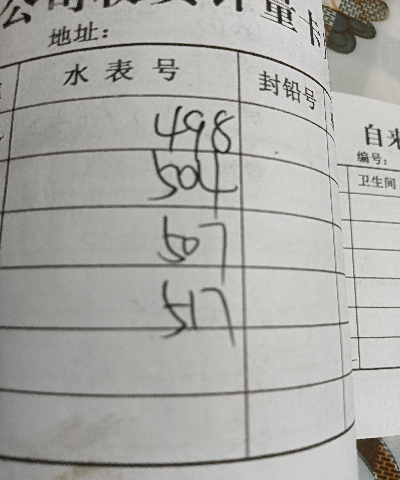 公司
计量卡
地址：
水表号
封铅号
498
504
507
517
自来
编号：
卫生间